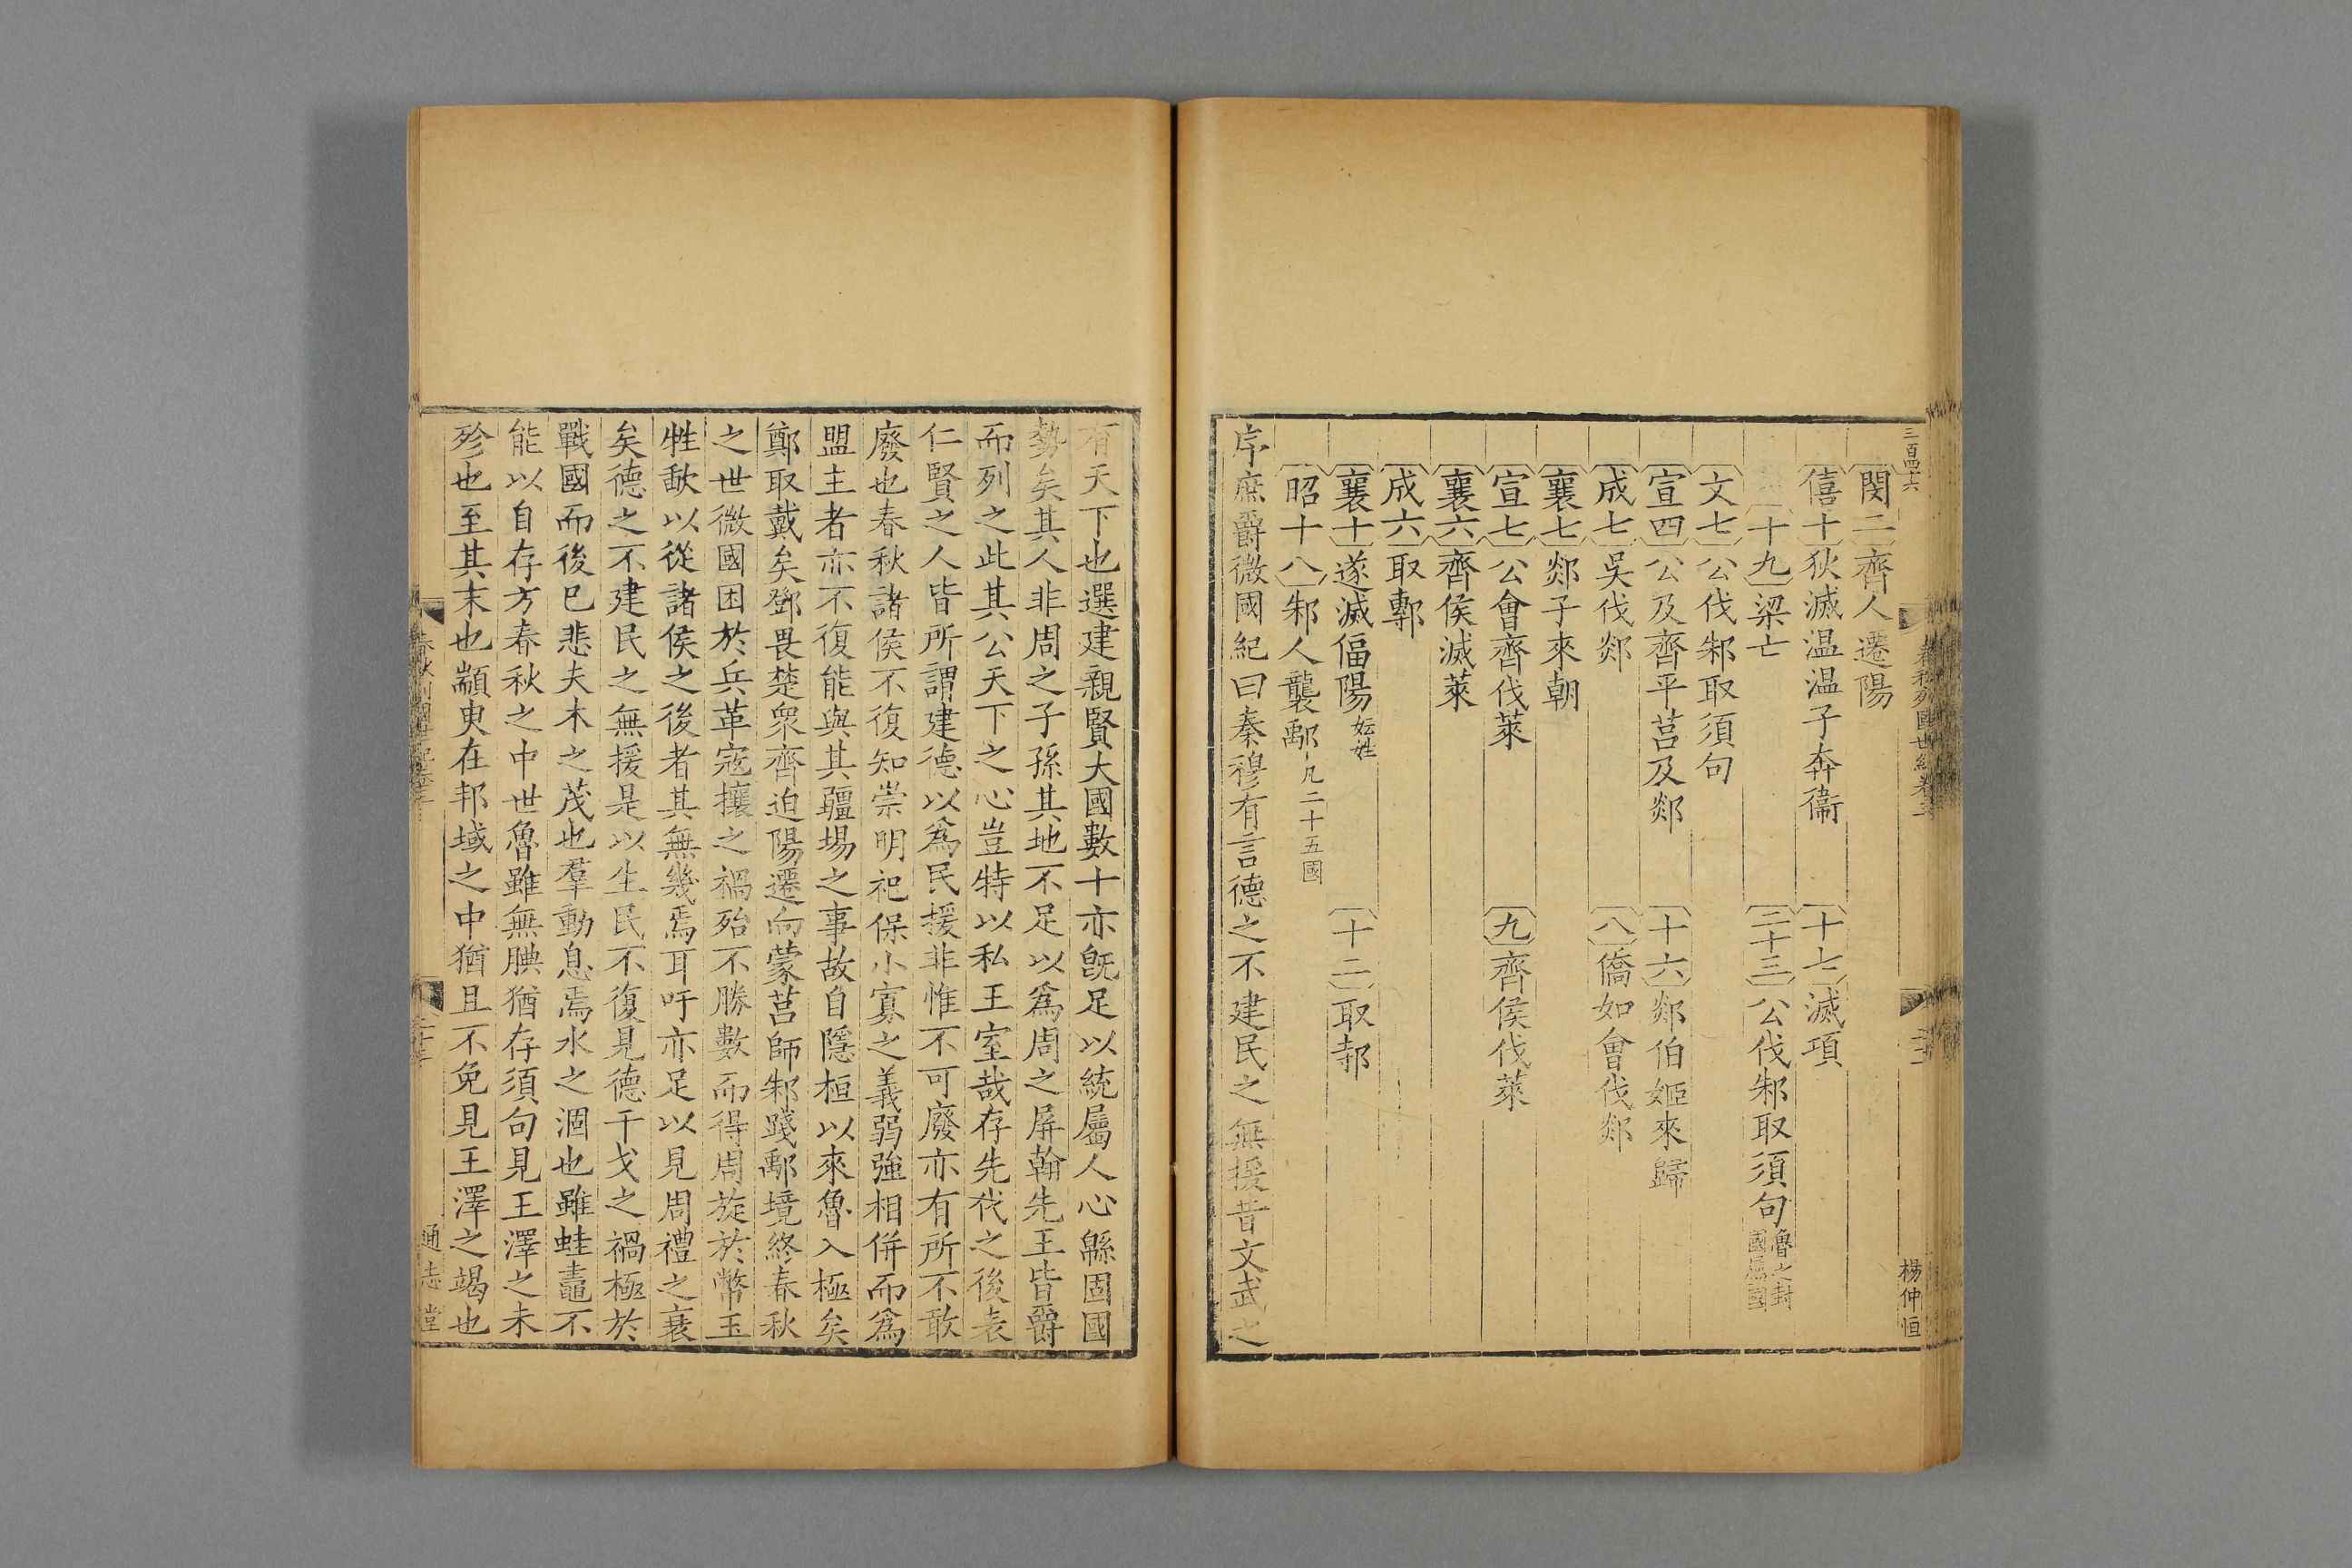 三百四十六
春秋列國世紀卷三
楊仲恒
閔二齊人遷陽
僖十狄滅温温子奔衞 十七滅項
十九梁亡 二十三公伐邾取須句魯之封國屬國
文七公伐邾取須句
宣四公及齊平莒及郯 十六郯伯姬來歸
成七吳伐郯 八僑如會伐郯
襄七郯子來朝
宣七公會齊伐萊 九齊侯伐萊
襄六齊侯滅萊
成六取鄟
襄十遂滅偪陽妘姓 十三取邿
昭十八邾人襲鄅凡二十五國
序庶爵微國紀曰秦穆有言德之不建民之無援昔文武之
有天下也選建親賢大國數十亦旣足以統屬人心緜固國
勢矣其人非周之子孫其地不足以爲周之屏翰先王皆爵
而列之此其公天下之心豈特以私王室哉存先代之後表
仁賢之人皆所謂建德以爲民援非惟不可廢亦有所不敢
廢也春秋諸侯不復知崇明祀保小寡之義弱強相併而爲
盟主者亦不復能與其疆埸之事故自隱桓以來魯入極矣
鄭取戴矣鄧畏楚衆齊迫陽遷向蒙莒師邾踐鄅境終春秋
之世微國困於兵革寇攘之禍殆不勝數而得周旋於幣玉
牲歃以從諸侯之後者其無幾焉耳吁亦足以見周禮之衰
矣德之不建民之無援是以生民不復見德干戈之禍極於
戰國而後已悲夫木之茂也羣動息焉水之涸也雖蛙黽不
能以自存方春秋之中世魯雖無腆猶存須句見王澤之未
殄也至其末也顓臾在邦域之中猶且不免見王澤之竭也
通志堂